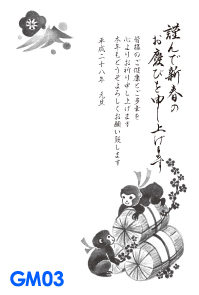 謹んで新春の
お慶びを申し上げます
皆様のご健康とご多幸を
心よりお祈り申し上げます
本年もどうぞよろしくお願い致します
平成二十八年　元旦
GM03